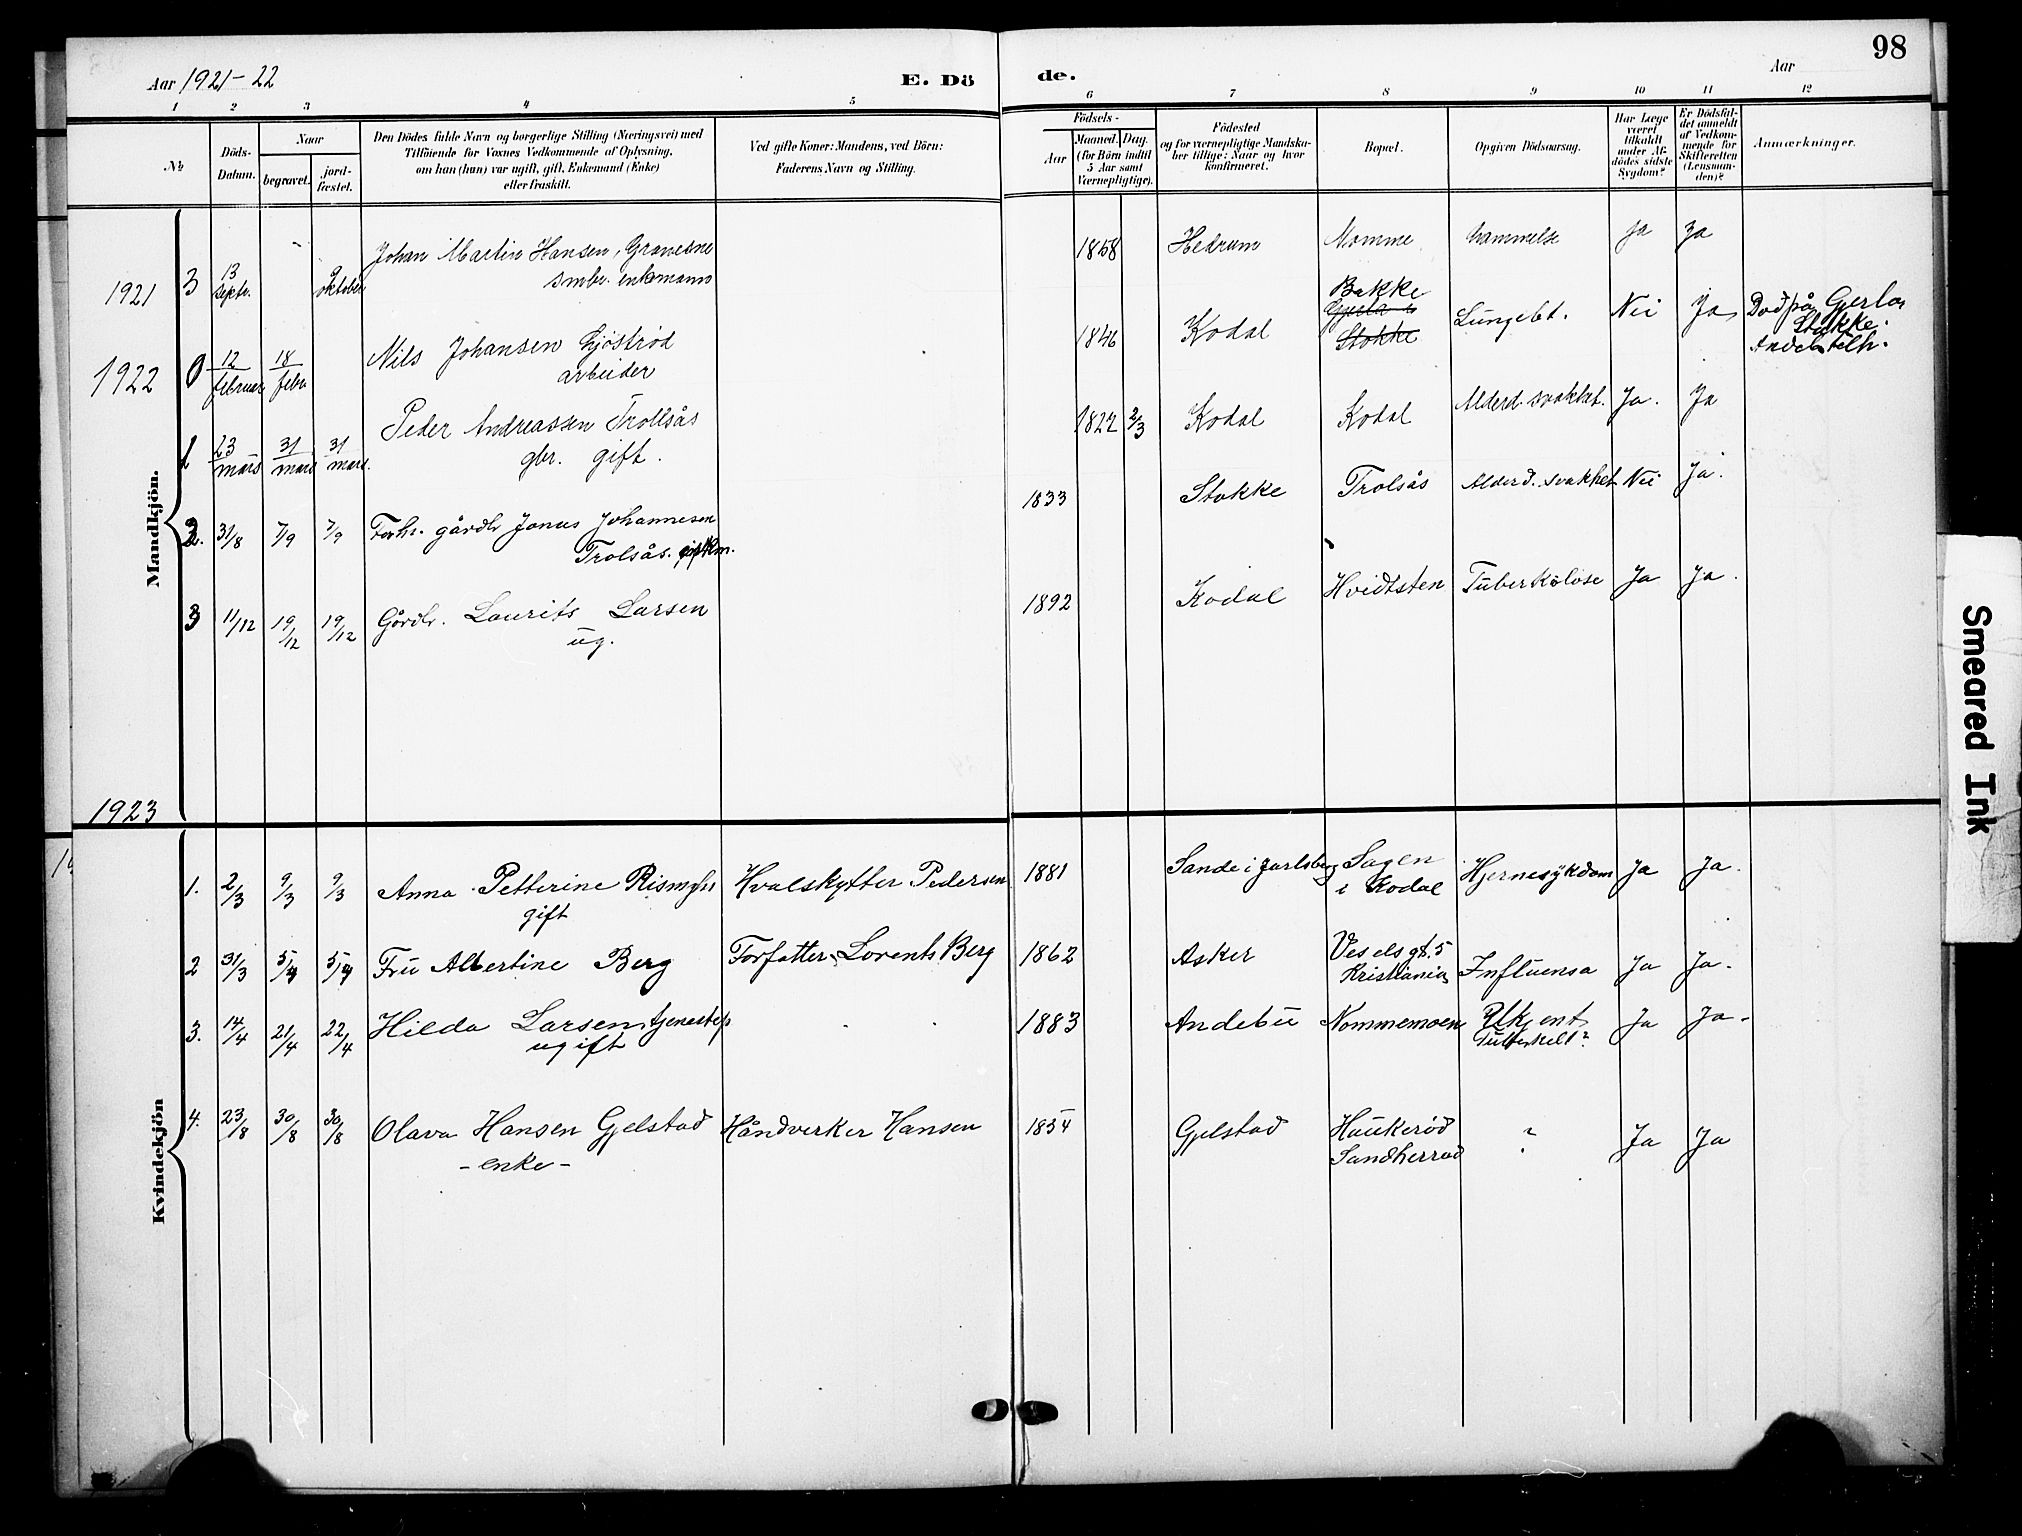 98
Aar 1921-22
E. Dö
de.
Aar
1 2 3 4 5 6 7 8 9 10 11 12
No
Döds-Datum.
Naar
begravet.
jord-fæstet.
Den Dödes fulde Navn og borgerlige Stilling (Næringsvei) med
Tilföiende for Voxnes Vedkommende af Oplysning,
om han (hun) var ugift, gift, Enkemand (Enke)
eller fraskilt.
Ved gifte Koner: Mandens, ved Börn:
Faderens Navn og Stilling.
Födsels-
Aar
Maaned. Dag.
(for Börn indtil
5 Aar samt
Værnepligtige).
Födested
og for værnepligtige Mandska-
ber tillige: Naar og hvor
konfirmeret.
Bopæl.
Opgiven Dödsaarsag.
Har Læge
været
tilkaldt
under Af-
dödes sidste
Sygdom?
Er Dödsfal-
det anmeldt
af Vedkom-
mende for
Skifteretten
(Lensman-
den)?
Anmærkninger.
Mandkjön.
1921 3 13 septr. 9 oktober Johan Martin Hansen, Gravesne
smbr. enkemann
1858 Hedrum Momme hammelse ja Ja
1922 0 12 februar 18 febr Nils Johansen Gjöströd
arbeider
1846 Kodal Bakke
Gjerla
Stokke
Lungebet. Nei Ja Död på Gjerla
Stokke.
Andebu
1 23 mars 31 mars 31 mars. Peder Andreassen Trollsås
gbr. gift.
1822 2/3 Kodal Kodal Alderd. svakhet. Ja. Ja
2. 31/8 7/9 7/9 Forh. gårdbr Jonas Johannesen
Trolsås.
1833 Stokke Trolsås Alderd. svakhet Nei Ja.
3 11/12 19/12 19/12 Gårdbr. Laurits Larsen
ug.
1892 Kodal Hvidtsten Tuberkülose Ja Ja.
1923
Kvindekjön
1. 2/3 9/3 9/3 Anna Petterine Rismyhr
gift
Hvalskytter Pedersen 1881 Sande i Jarlsberg Sagen
i Kodal
Hjernesykdom Ja Ja.
2 31/3 5/4 5/4 Fru Albertine Berg Forfatter Lorents Berg 1862 Asker Vesels gt. 5
Kristiania
Influensa Ja Ja.
3. 14/4 21/4 22/4 Hilda Larsen, tjenestep
ugift
1883 Andebu Nommemoen Ukjent
Ja Ja.
4. 23/8 30/8 30/8 Olava Hansen Gjelstad
- enke -
Håndverker Hansen 1854 Gjelstad Haukeröd
Sandherred
? Ja Ja
Smeared Ink